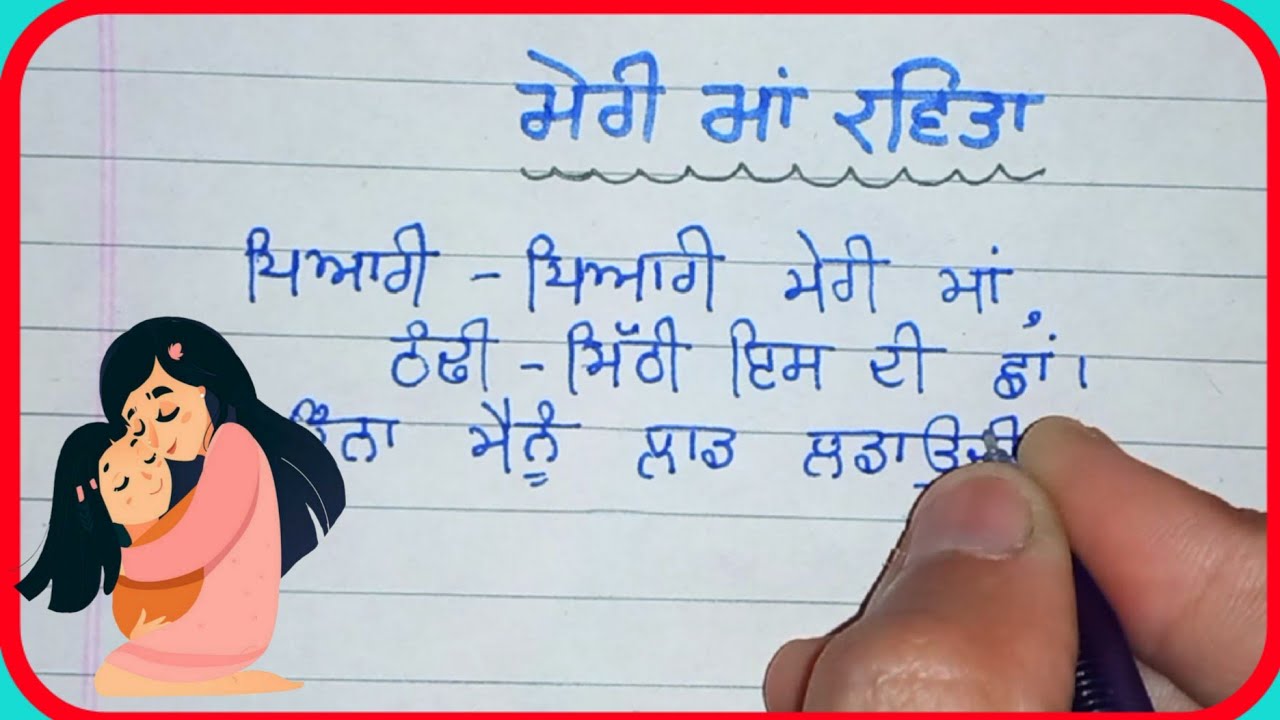 ਮੇਰੀ ਮਾਂ ਕਵਿਤਾ
ਪਿਆਰੀ - ਪਿਆਰੀ ਮੇਰੀ ਮਾਂ,
ਠੰਢੀ - ਮਿੱਠੀ ਇਸ ਦੀ ਛਾਂ।
ਮੈਨੂੰ ਲਾਡ